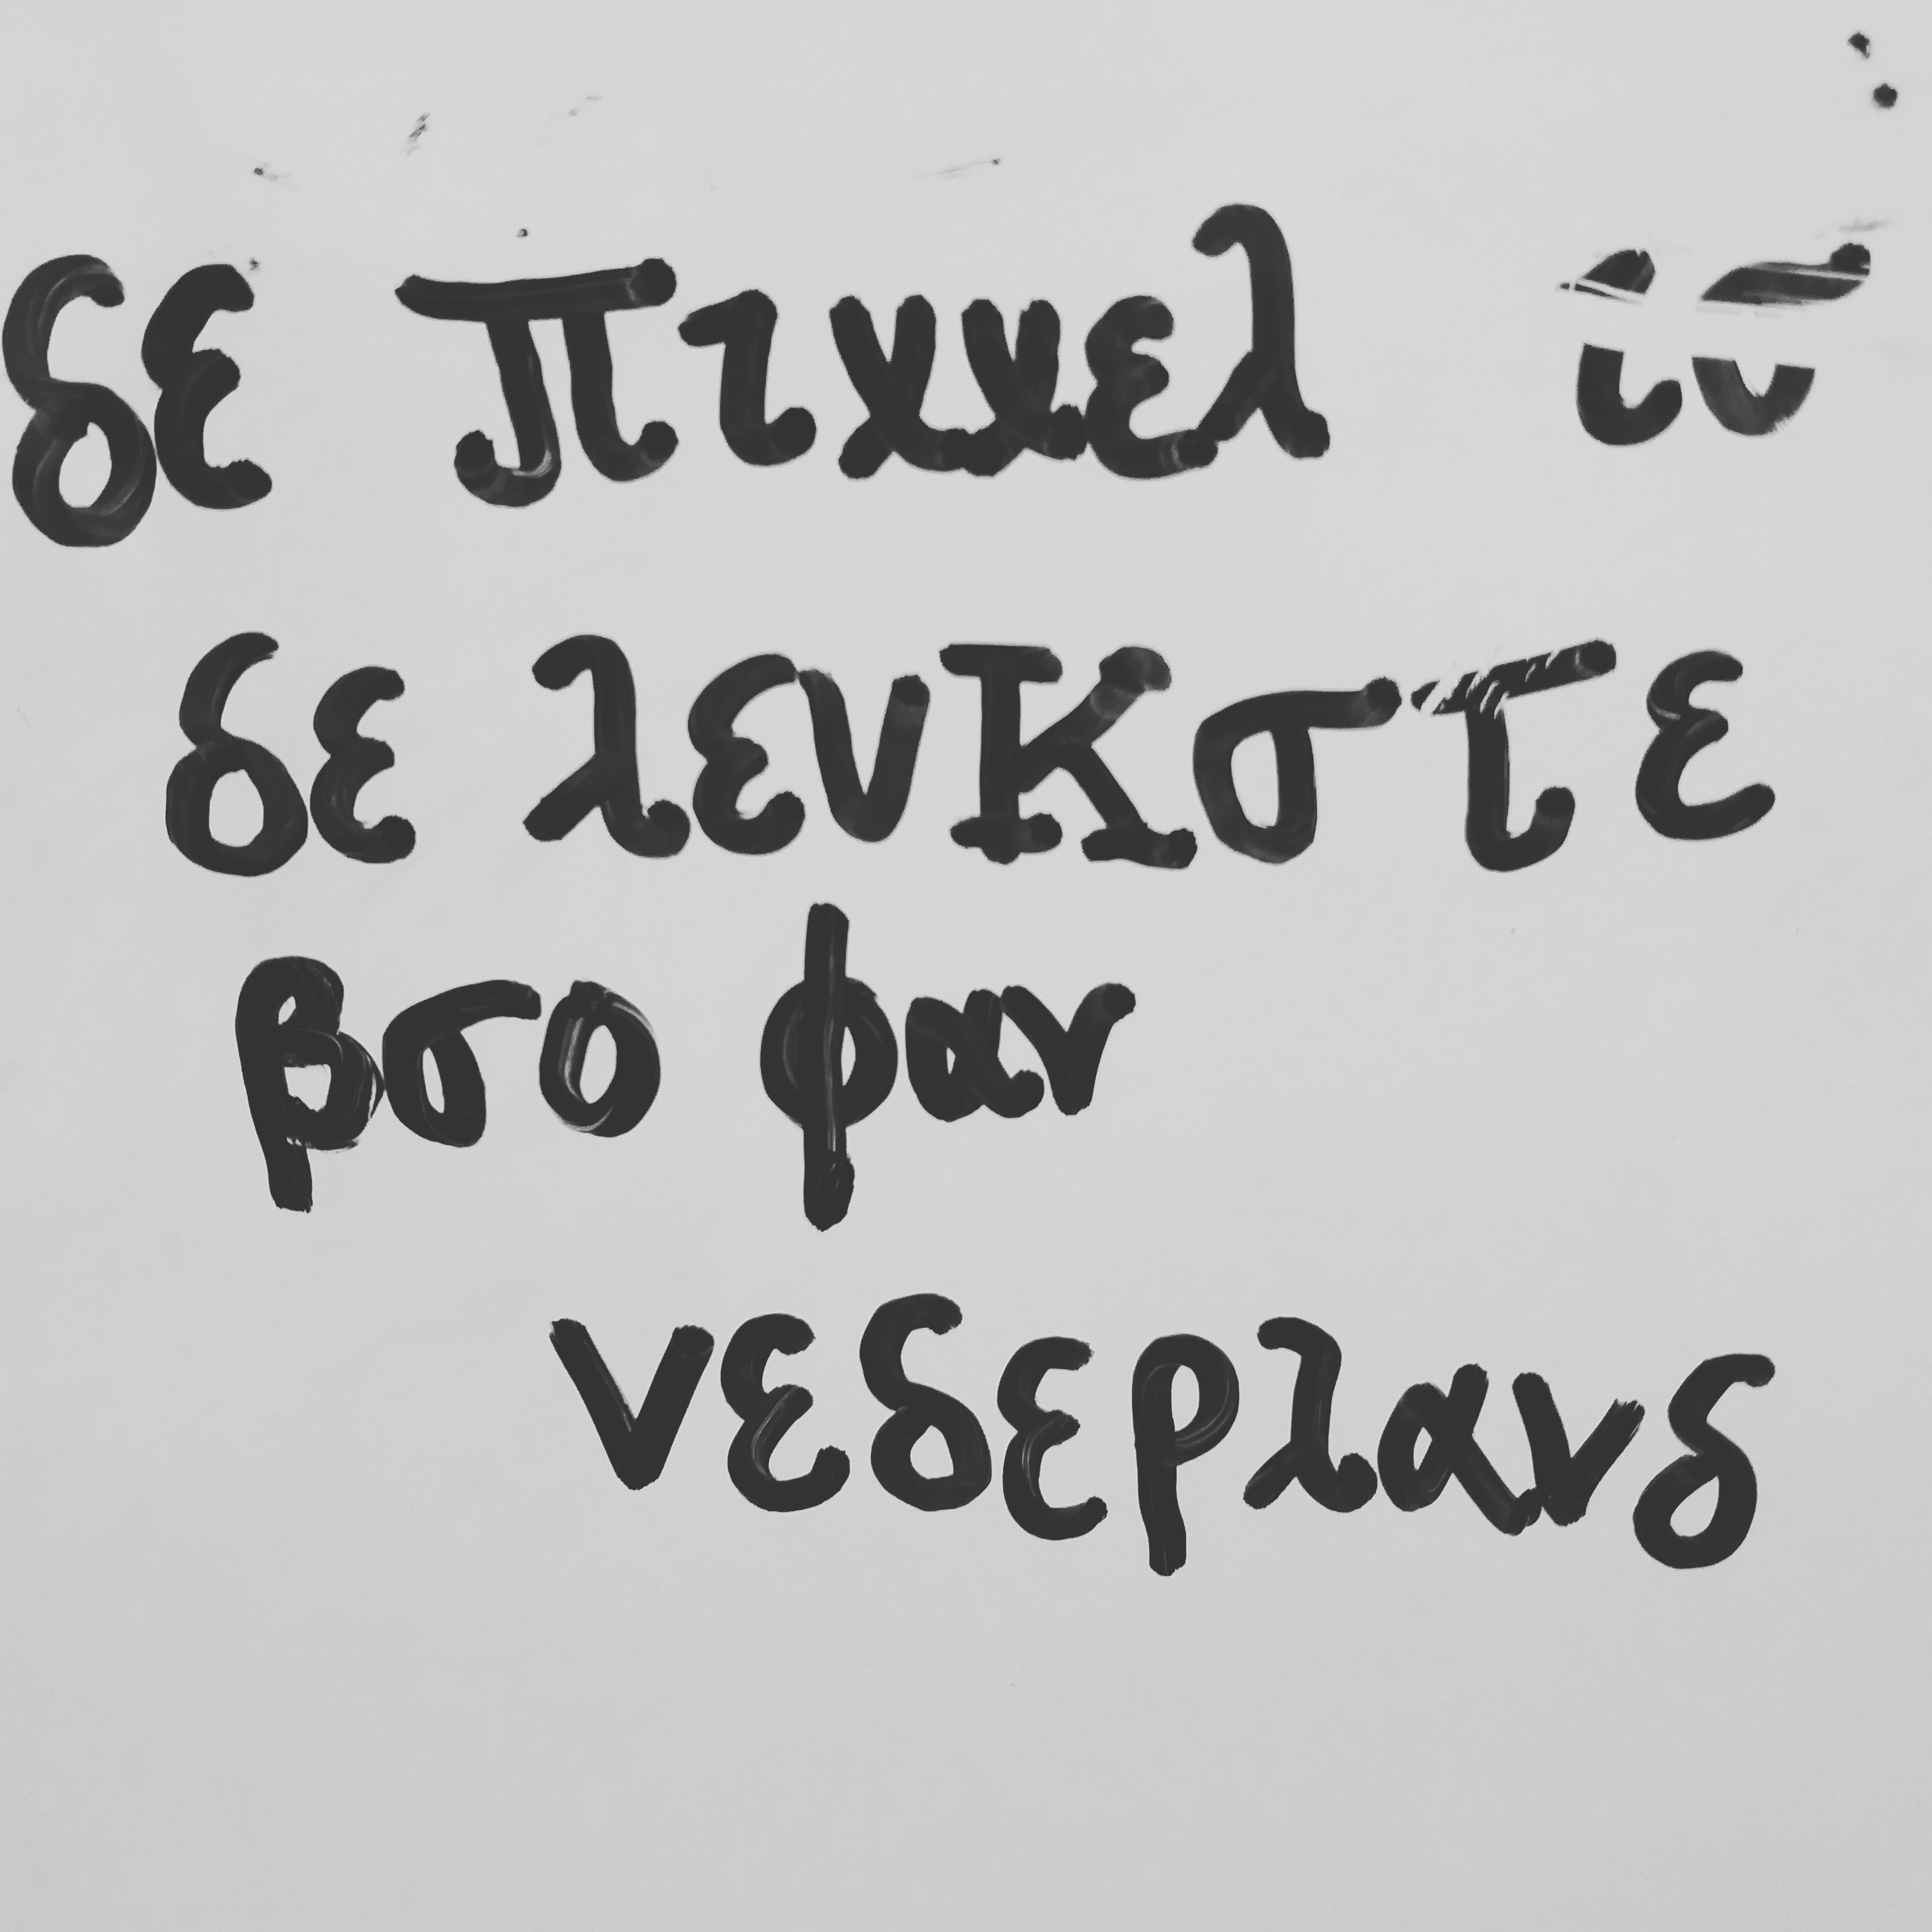 δε πικκελ ισ
δε λευκστε
βσο φαν
νεδερλανδ